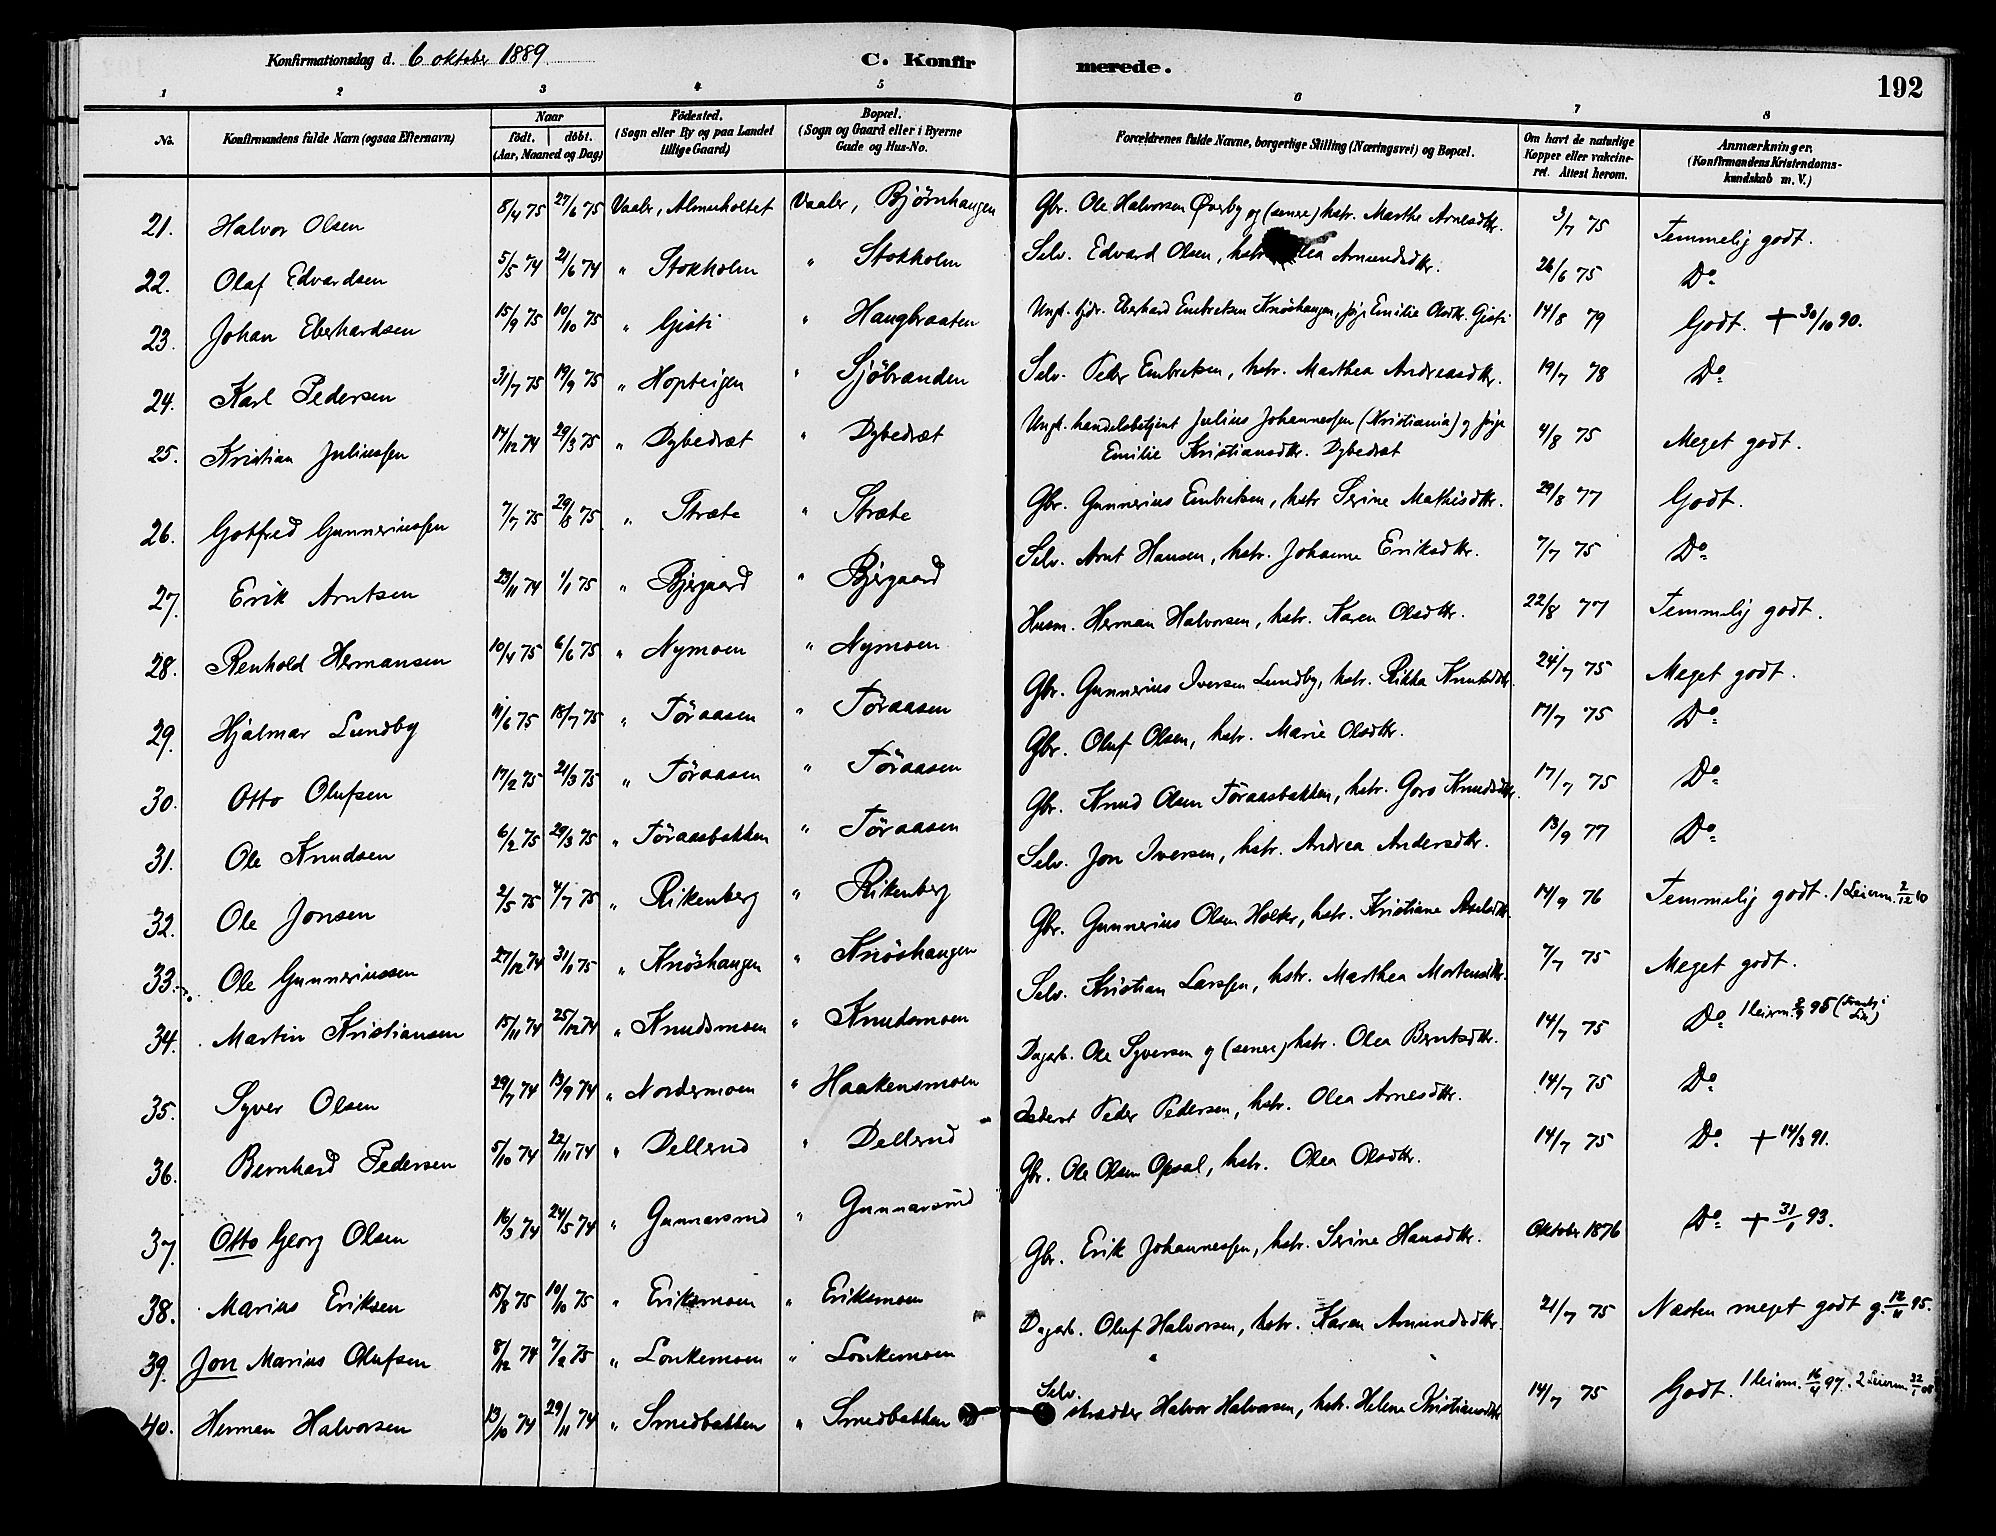 Konfirmationsdag d. 6 oktober 1889. C. Konfirmerede. 192
1 2 3 4 5 6 7 8
No. Konfirmandens fulde Navn (ogsaa Efternavn) Naar født. døbt. (Aar, Maaned og Dag) Födested. (Sogn eller By og paa Landet tillige Gaard) Bopæl. (Sogn og Gaard eller i Byerne Gade og Hus-No. Forældrenes fulde Navne, borgerlige Stilling (Næringsvei) og Bopæl. Om havt de naturlige Kopper eller vakcineret. Attest herom. Anmærkninger. (Konfirmandens Kristendomskundskab m. V.)
21. Halvor Olsen 8/4 75 27/6 75 Vaaler, Almerholtet Vaaler, Bjørnhaugen Gbr. Ole Halvorsen Øverby og (senere) hstr. Marthe Arnesdtr. 3/7 75 Temmelig godt.
22. Olaf Edvardsen 5/5 74 21/6 74 " Stokholm " Stokholm Selv. Edvard Olsen, hstr. Amundsdtr. 26/6 75 Do
23. Johan Eberhardsen 15/9 75 10/10 75 " Gisti " Haugbraaten Ungk. Eberhard Embretsen Knøshaugen, pige Emilie Olsdtr. Gisti 14/8 79 Godt. + 30/10 90.
24. Karl Pedersen 31/7 75 19/9 75 " Hopteigen " Sjöbranden Selv. Peder Embretsen, hstr. Marthea Andreasdtr. 19/7 78 Do
25. Kristian Juliussen 14/12 74 29/3 75 " Dybedræt " Dybedræt Ungk. handelsbetjent Julius Johannessen (Kristiania) og pige Emilie Kristiansdtr. Dybedræt 4/8 75 Meget godt.
26. Gotfred Gunneriussen 7/7 75 29/8 75 " Stræte " Stræte Gbr. Gunnerius Embretsen, hstr Serine Mathisdtr. 29/8 77 Godt.
27. Erik Arntsen 23/11 74 1/1 75 " Bjørgaard " Bjørgaard Selv. Arnt Hansen, hstr. Johanne Eriksdtr. 7/7 75 Do
28. Renhold Hermansen 10/4 75 6/6 75 " Nymoen " Nymoen Husm. Herman Halvorsen, hstr. Karen Olsdtr. 22/8 77 Temmelig godt.
29. Hjalmar Lundby 11/6 75 18/7 75 " Töraasen " Töraasen Gbr. Gunnerius Iversen Lundby, hstr. Rikka Knutsdtr. 24/7 75 Meget godt.
30. Otto Olufsen 17/2 75 21/3 75 " Töraasen " Töraasen Gbr. Oluf Olsen, hstr. Marie Olsdtr. 17/7 75 Do
31. Ole Knudsen 6/2 75 29/3 75 " Töraasbakken " Töraasen Gbr. Knud Olsen Töraasbakken, hstr. Goro Knudsdtr. 17/7 75 Do
32. Ole Jonsen 2/5 75 4/7 75 " Rikenberg " Rikenberg Selv. Jon Iversen, hstr. Andrea Andersdtr. 13/9 77 Do
33. Ole Gunneriussen 27/12 74 31/1 75 " Knöshaugen " Knöshaugen Gbr. Gunnerius Olsen Holter, hstr. Kristiane Axelsdtr. 14/9 76 Temmelig godt. 1 Leierm. 2/12 10
34. Martin Kristiansen 15/11 74 25/12 74 " Knudsmoen " Knudsmoen Selv. Kristian Larssen, hstr. Marthea Mortensdtr. 7/7 75 Meget godt.
35. Syver Olsen 29/7 74 13/9 74 " Nordermoen " Haakensmoen Dagarb. Ole Syversen og (senere) hstr. Olea Berntsdtr. 14/7 75 Do 1 leierm. 95
36. Bernhard Pedersen 5/10 74 22/11 74 " Dellerud " Dellerud Peder Pedersen, hstr. Olea Arnesdtr. 14/7 75 Do
37. Otto Georg Olsen 16/3 74 24/5 74 " Gunnarsrud " Gunnarsrud Gbr. Ole Olsen Opsal, hstr. Olea Olsdtr. 14/7 75 Do + 14/3 91.
38. Marius Eriksen 15/8 75 10/10 75 " Eriksmoen " Eriksmoen Gbr. Erik Johannessen, hstr. Serine Hansdtr. Oktober 1876 Do + 31/1 93.
39. Jon Marius Olufsen 8/12 74 7/2 75 " Lonkemoen " Lonkemoen Dagarb. Oluf Halvorsen, hstr. Karen Amundsdtr. 21/7 75 Næsten meget godt g. 12/11 95.
40. Herman Halvorsen 13/10 74 29/11 74 " Smedbakken " Smedbakken Selv. skrædder Halvor Halvorsen, hstr. Helene Kristiansdtr. 14/7 75 Godt. 1 leierm. 16/4 97. 2 Leierm.